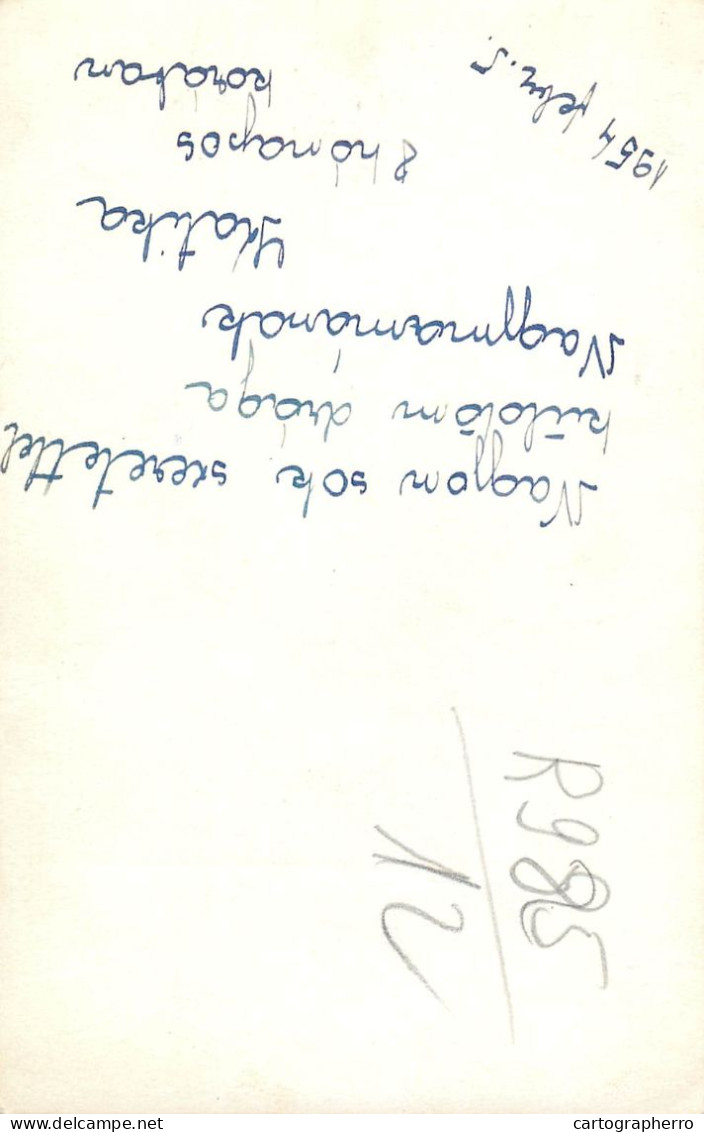 Nagyon sok szeretettel
küldöm drága
Nagymamának
Katika
8 hónapos
korában
1954 febr. 5.
R985
12
delcampe.net
cartographerro